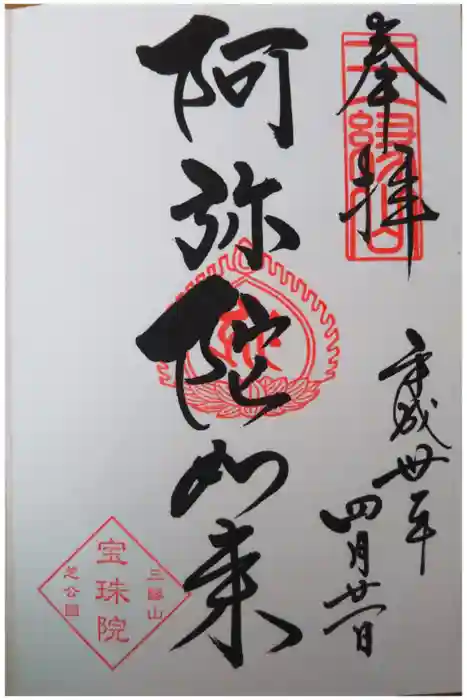 奉拝
平成卅年
四月廿一日
阿弥陀如来
三縁山
宝珠院
芝公園